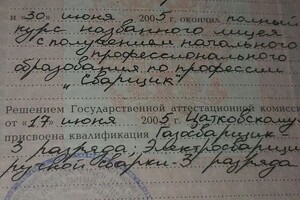 и «30» июня 2005 г. окончил полный
курс названного лицея
с получением начального
профессионального
образования по профессии
„Сварщик"
Решением Государственной аттестационной комисс
от «17» июня 2005 г. Цатковскому
присвоена квалификация Газосварщик -
3 разряда; Электросварщик
ручной сварки - 3 разряда